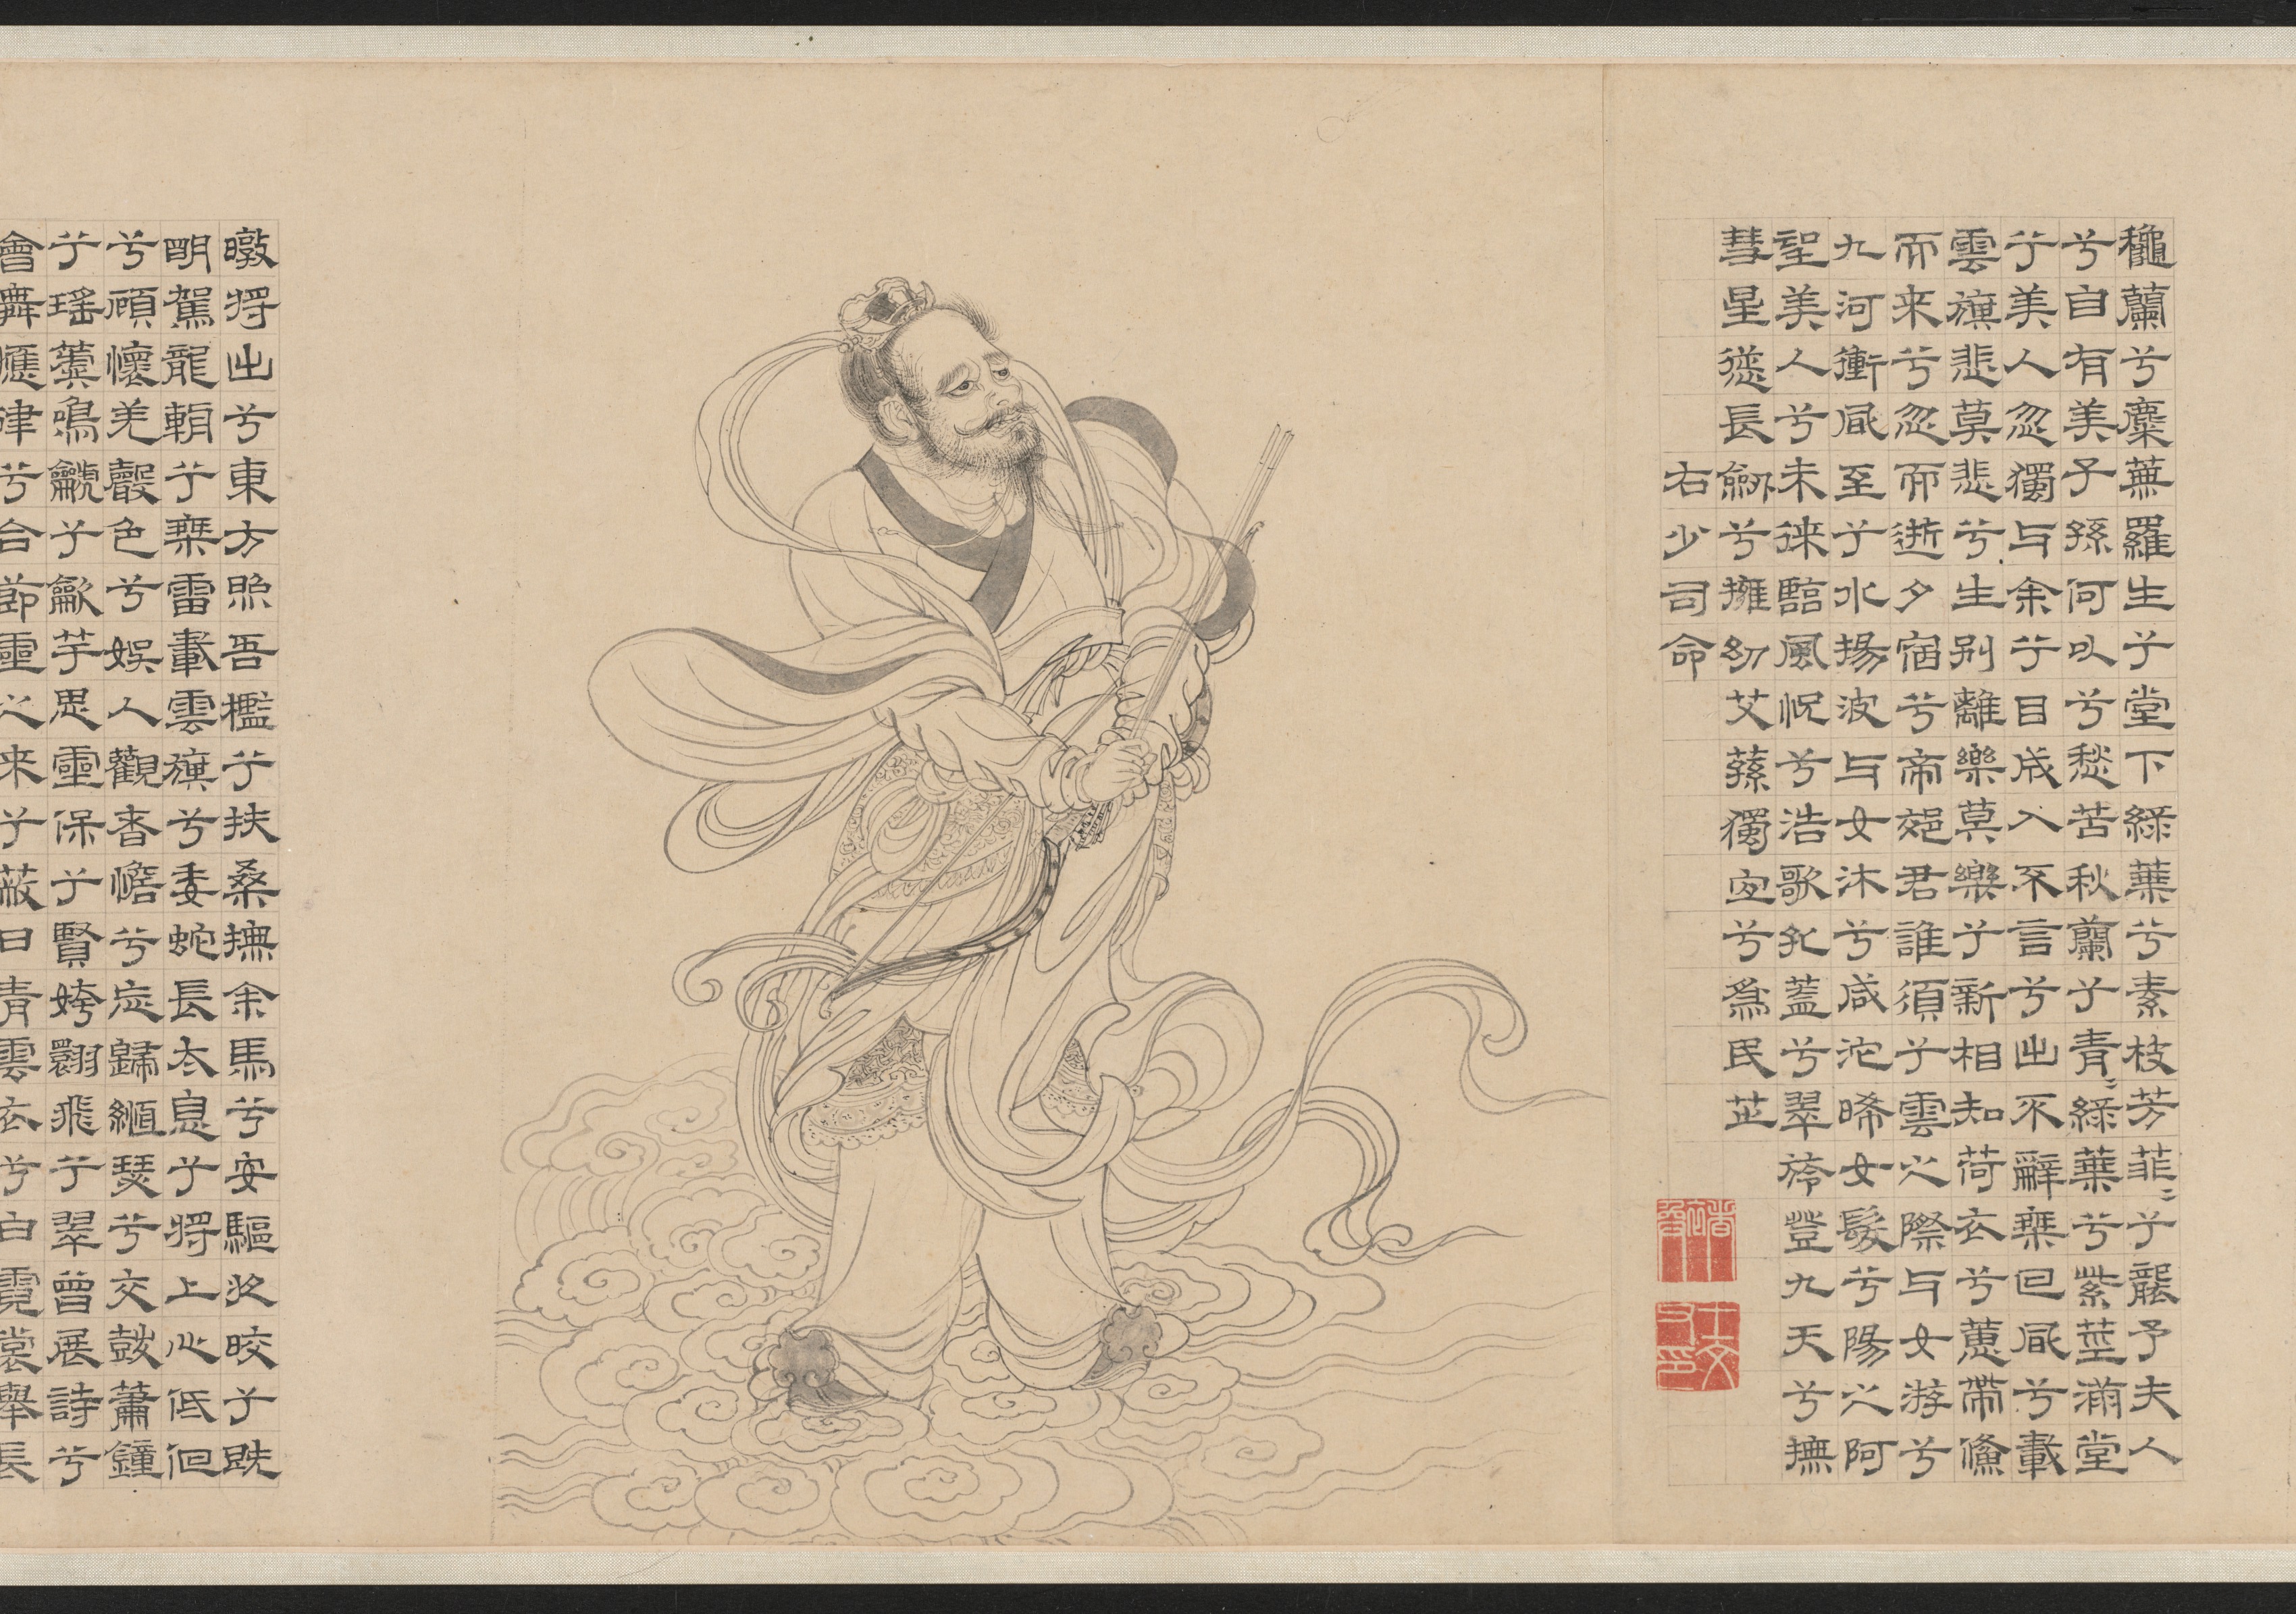 龝蘭兮麋蕪羅生兮堂下綠葉兮素枝芳菲〻兮襲予夫人
兮自有美子孫何以兮愁苦秋蘭兮青〻綠葉兮紫莖滿堂
兮美人忽獨与余兮目成入不言兮出不辭乘回風兮載
雲旗悲莫悲兮生別離樂莫樂兮新相知荷衣兮蕙帶儵
而来兮忽而逝夕宿兮帝郊君誰須兮雲之際与女游兮
九河衝風至兮水揚波与女沐兮咸沱晞女髮兮陽之阿
望美人兮未徠臨風怳兮浩歌孔蓋兮翠旍登九天兮撫
彗星慫長劒兮擁幼艾蓀獨宜兮為民芷
右少司命
暾將出兮東方照吾檻兮扶桑撫余馬兮安驅夜晈兮既
明駕龍輈兮乘雷載雲旗兮委蛇長太息兮將上心低徊
兮顧懷羌聲色兮娛人觀者憺兮忘歸縆瑟兮交鼓簫鐘
兮瑤簴鳴䶵兮龡竽思靈保兮賢姱翾飛兮翠曾展詩兮
會舞應律兮合節靈之来兮蔽日青雲衣兮白霓裳舉長